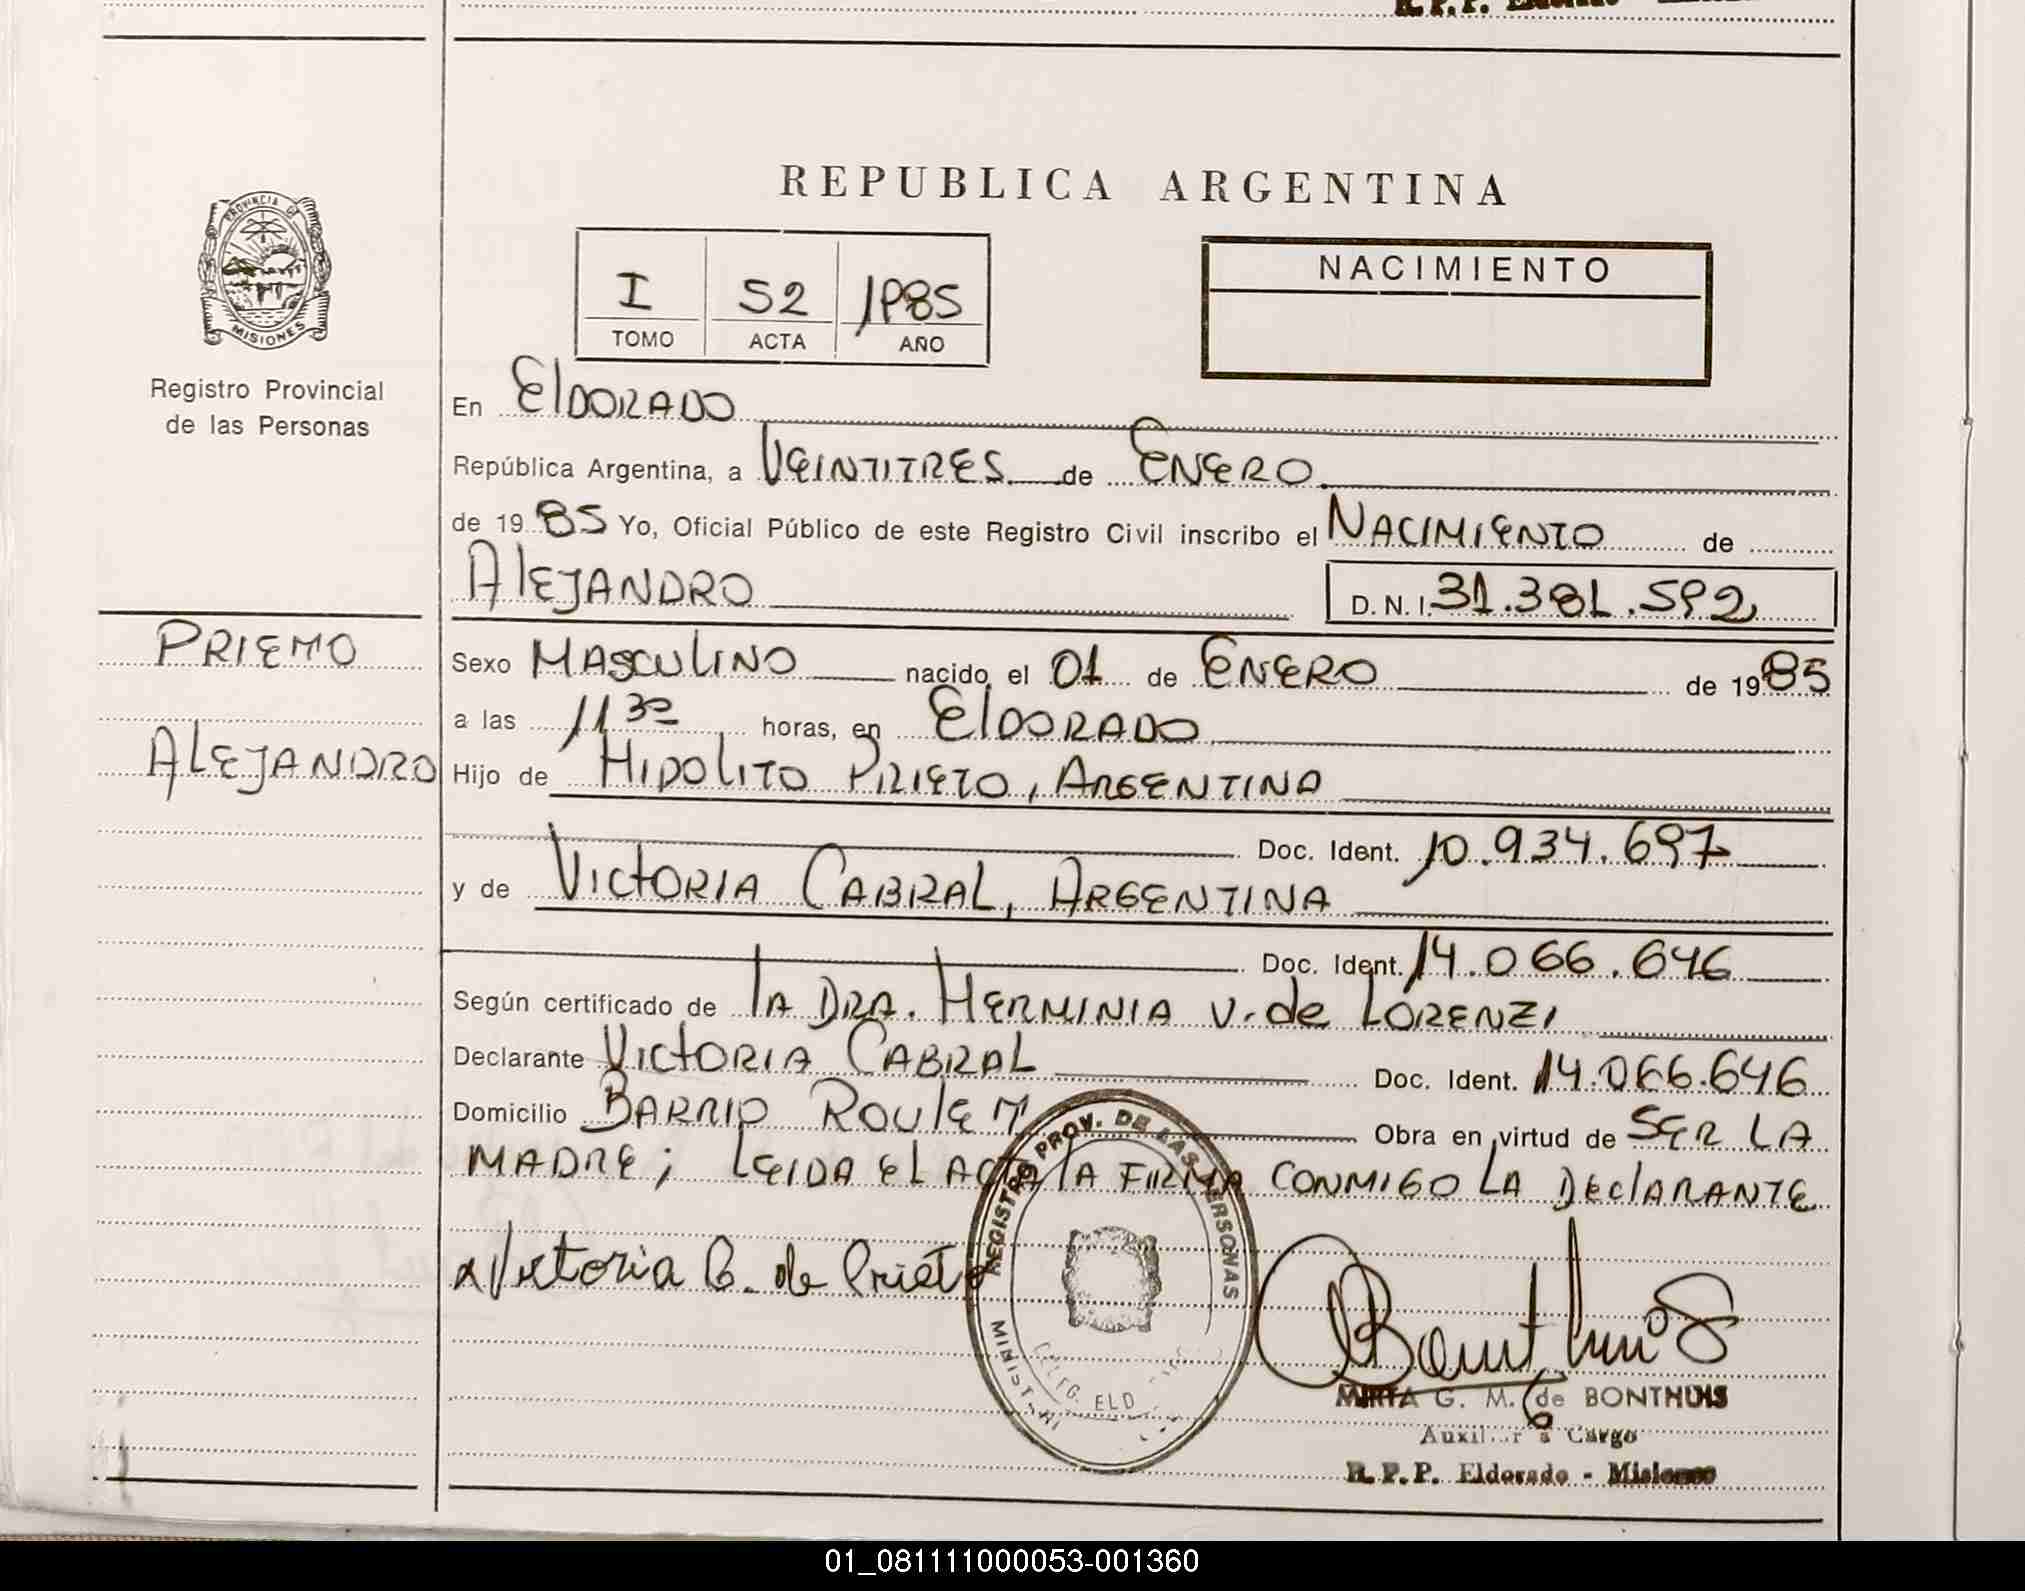 R.P.P. Eldorado
REPUBLICA ARGENTINA
PROVINCIA D
MISIONES
Registro Provincial
de las Personas
I 52 1985
TOMO ACTA AÑO
NACIMIENTO
En ElDORADO
República Argentina, a VEINTITRES de ENERO
de 19 85 Yo, Oficial Público de este Registro Civil inscribo el NACIMIENTO de
AlEJANDRO D. N. I. 31.381.592
PRIETO
ALEJANDRO
Sexo MASCULINO nacido el 01 de ENERO de 19 85
a las 11 30 horas, en ElDORADO
Hijo de HIPOLITO PRIETO, ARGENTINO
Doc. Ident. 10.934.697
y de VICTORIA CABRAL, ARGENTINA
Doc. Ident. 14.066.646
Según certificado de lA DRA. HERMINIA V. de LORENZI
Declarante VICTORIA CABRAL Doc. Ident. 14.066.646
Domicilio BARRIO ROULET Obra en virtud de SER LA
MADRE; LEIDA El ACTA lA FIRMA CONMIGO LA DEClARANTE
Victoria C. de Prieto
REGISTRO PROV. DE LAS PERSONAS
DELEG. ELD
Bonthuis
MIRTA G. M. de BONTHUIS
Auxiliar a Cargo
R.P.P. Eldorado - Misiones
01_081111000053-001360